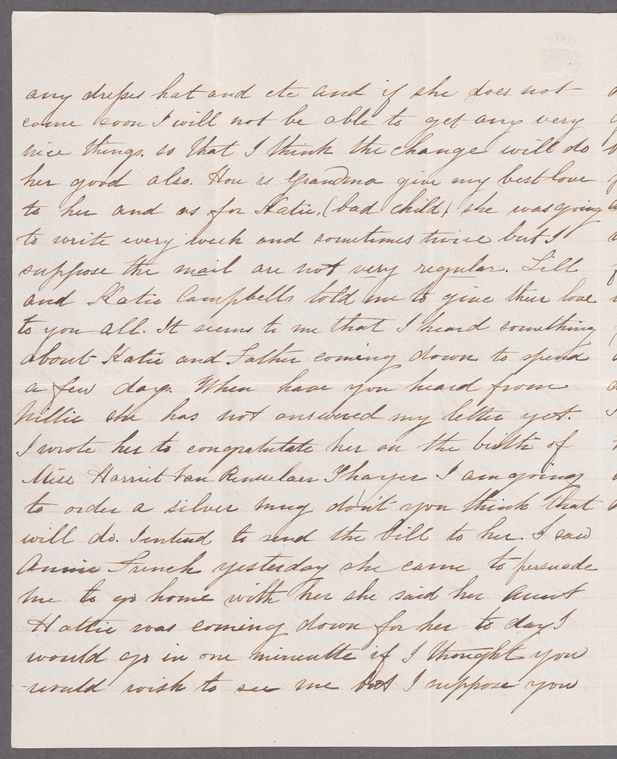 any dresses hat and etc and if she does not
come soon I will not be able to get any very
nice things. so that I think the change will do
her good also. How is Grandma give my best love
to her and as for Katie, (bad child) she was going
to write every week and sometimes twice but I
suppose the mail are not very regular. Lill
and Katie Campbells told me to give their love
to you all. It seems to me that I heard something
about Katie and Father coming down to spend
a few days. When have you heard from
Nillie she has not answered my letter yet.
I wrote her to congratutate her on the birth of
Miss Harriet Van Rensselaer Thayer I am going
to order a silver mug don't you think that
will do. I intend to send the bill to her. I saw
Annie French yesterday she came to persuade
me to go home with her she said her Aunt
Hattie was coming down for her to day I
would go in one minuette if I thought you
would wish to see me but I suppose you